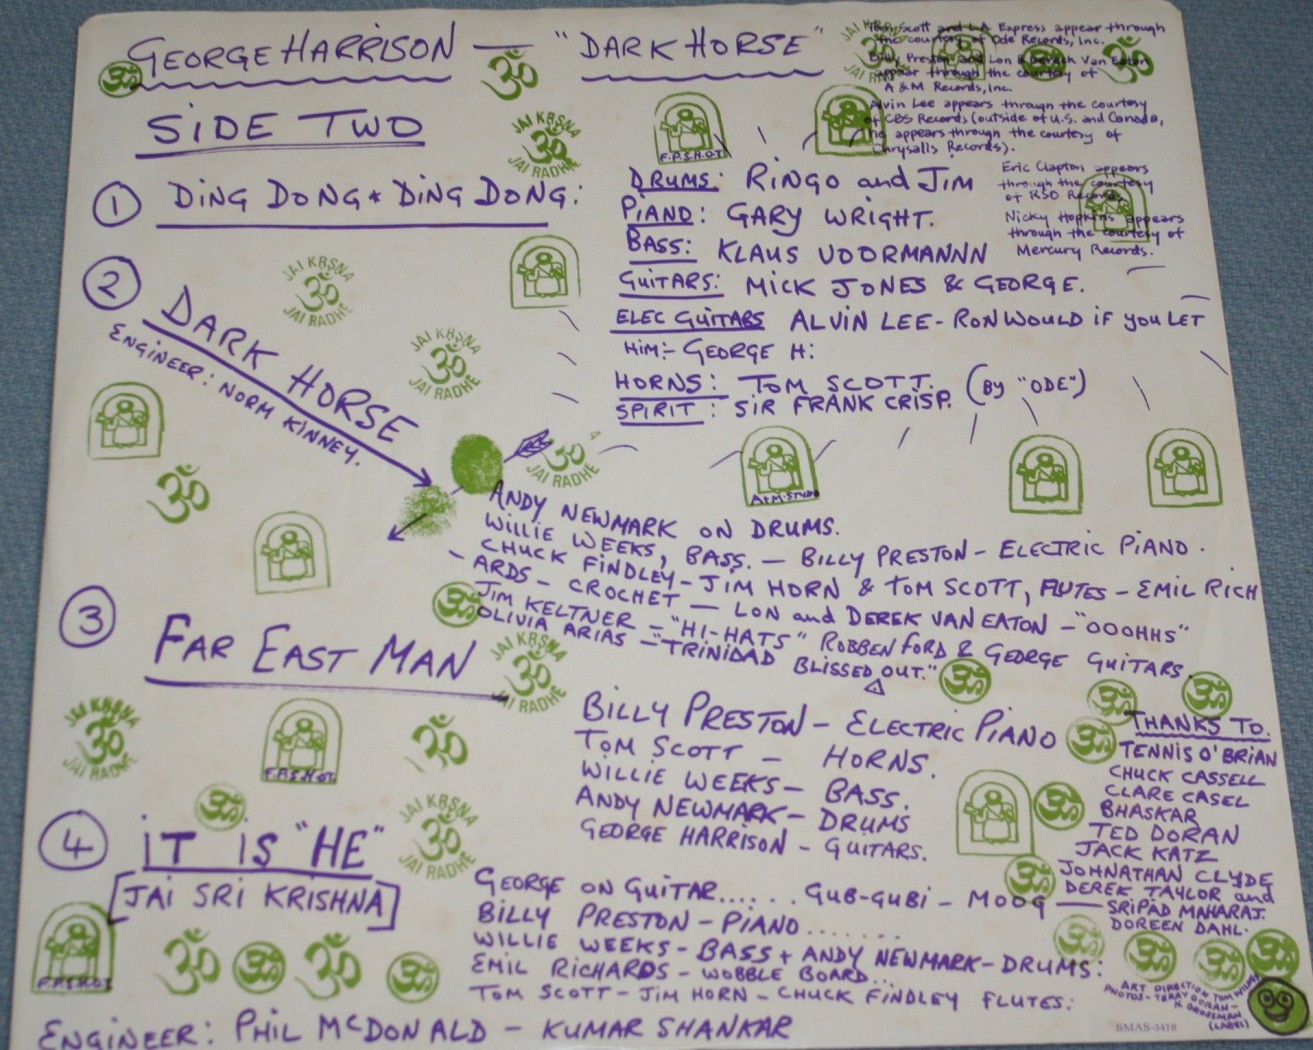 GEORGE HARRISON — "DARK HORSE"
SIDE TWO
Tom Scott and L.A. Express appear through
the courtesy of Ode Records, Inc.
Billy Preston and Lon & Derrek Van Eaton
appear through the courtesy of
A & M Records, Inc.
Alvin Lee appears through the courtesy
of CBS Records (outside of U.S. and Canada,
he appears through the courtesy of
Chrysalis Records).
Eric Clapton appears
through the courtesy
of RSO Records
Nicky Hopkins appears
through the courtesy of
Mercury Records.
1 DING DONG * DING DONG:
DRUMS: RINGO and JIM
PIANO: GARY WRIGHT.
BASS: KLAUS VOORMANNN
GUITARS: MICK JONES & GEORGE.
ELEC GUITARS ALVIN LEE - RON WOULD IF YOU LET
HIM:- GEORGE H:
HORNS: TOM SCOTT. (BY "ODE")
SPIRIT: SIR FRANK CRISP.
2 DARK HORSE
ENGINEER: NORM KINNEY.
ANDY NEWMARK ON DRUMS.
WILLIE WEEKS, BASS. — BILLY PRESTON - ELECTRIC PIANO.
CHUCK FINDLEY - JIM HORN & TOM SCOTT, FLUTES - EMIL RICH
- ARDS - CROCHET — LON and DEREK VAN EATON - "OOOHHS"
JIM KELTNER - "HI-HATS" ROBBEN FORD & GEORGE GUITARS.
OLIVIA ARIAS - "TRINIDAD BLISSED OUT."
3 FAR EAST MAN
BILLY PRESTON - ELECTRIC PIANO
TOM SCOTT - HORNS.
WILLIE WEEKS - BASS.
ANDY NEWMARK - DRUMS
GEORGE HARRISON - GUITARS.
THANKS TO.
TENNIS O'BRIAN
CHUCK CASSELL
CLARE CASEL
BHASKAR
TED DORAN
JACK KATZ
JOHNATHAN CLYDE
DEREK TAYLOR and
SRIPAD MAHARAJ.
DOREEN DAHL.
4 iT iS "HE"
[JAI SRI KRISHNA]
GEORGE ON GUITAR...... GUB-GUBI - MOOG
BILLY PRESTON - PIANO.......
WILLIE WEEKS - BASS + ANDY NEWMARK - DRUMS:
EMIL RICHARDS - WOBBLE BOARD...
TOM SCOTT - JIM HORN - CHUCK FINDLEY FLUTES:
ENGINEER: PHIL McDONALD - KUMAR SHANKAR
ART DIRECTION TOM WILKES
PHOTOS - TERRY DORAN -
H. GROSSMAN
(LABEL)
SMAS-3418
ॐ
JAI KRSNA
ॐ
JAI RADHE
F.P.S.H.O.T.
A+M. STUDIO